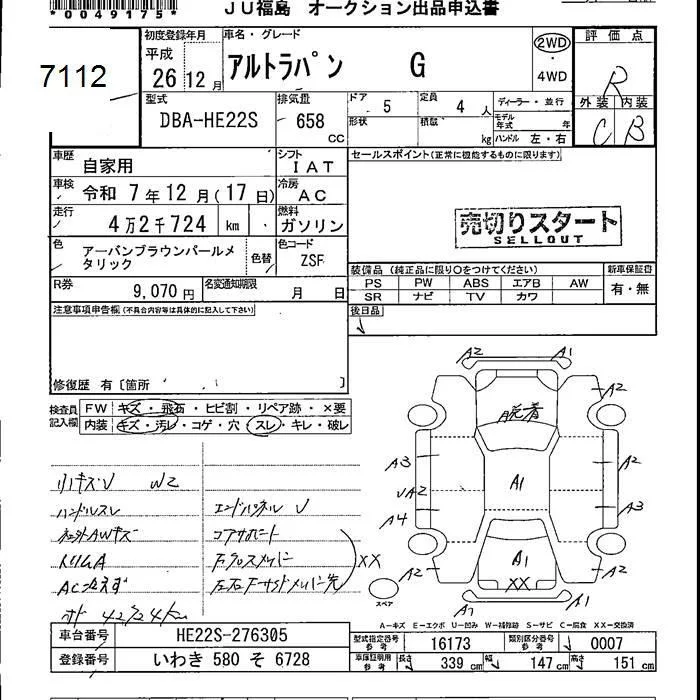 *0049175*
JU福島 オークション出品申込書
7112
初度登録年月
平成
26 12 月
車名・グレード
アルトラパン G
2WD
4WD
評価点
R
外装 内装
C B
型式
DBA-HE22S
排気量
658
CC
ドア 5
定員 4 人
ディーラー・並行
形状
積載
kg
モデル年式 年
ハンドル 左・右
車歴
自家用
シフト
IAT
セールスポイント(正常に機能するものに限ります)
車検
令和 7 年 12 月 ( 17 日)
冷房
AC
走行
4万2千724 km
燃料
ガソリン
売切りスタート
SELLOUT
色
アーバンブラウンパールメタリック
色替
色コード
ZSF
装備品 (純正品に限り○をつけてください)
新車保証書
PS PW ABS エアB AW
有・無
SR ナビ TV カワ
R券
9,070 円
名変通知期限
月 日
後日品
注意事項申告欄(不具合内容等は具体的に記入して下さい)
修復歴 有〔箇所 〕
検査員記入欄
FW キズ・飛石・ヒビ割・リペア跡・×要
内装 キズ・汚レ・コゲ・穴・スレ・キレ・破レ
小キズU W2
ハンドルスレ
トリムA
エンドパネル U
コアサポート
XX
A2 A1
A2
脱着
A3
A2
A1
UA2
A4
A3
A1
A2
XX
A2
A2
A1
スペア
A-キズ E-エクボ U-凹み W-補修跡 S-サビ C-腐食 XX-交換済
車台番号
HE22S-276305
型式指定番号 参考
16173
類別区分番号 参考
0007
登録番号
いわき 580 そ 6728
車庫証明用 参考
長さ 339 cm
幅 147 cm
高さ 151 cm